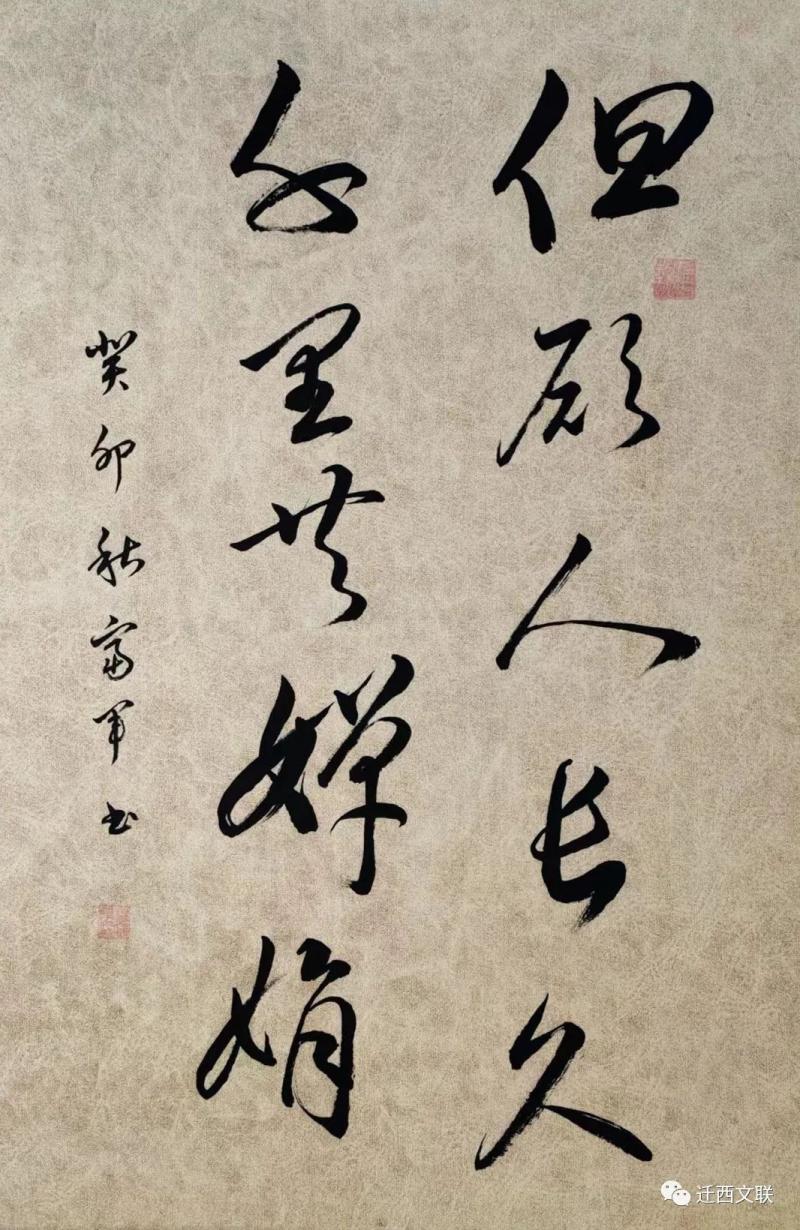 但愿人长久
千里共婵娟
癸卯秋富军书
迁西文联